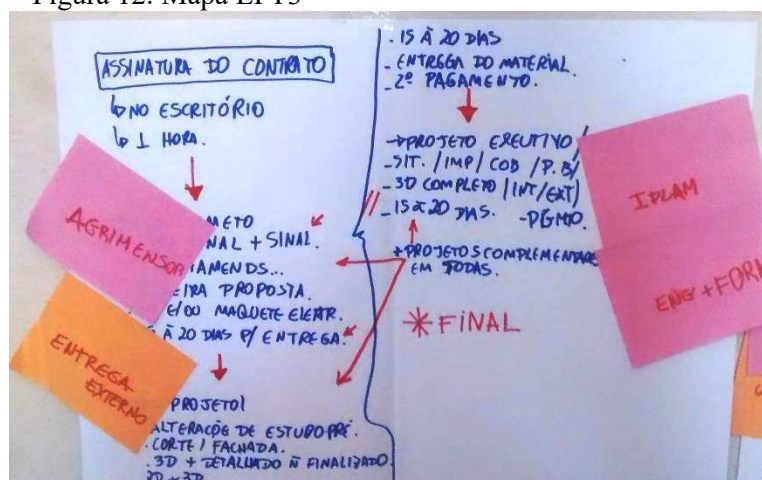 Figura 12: Mapa EPT3
ASSINATURA DO CONTRATO
NO ESCRITÓRIO
1 HORA.
AGRIMENSOR
METO
NAL + SINAL.
AMENDS...
EIRA PROPOSTA.
E/OU MAQUETE ELETR.
À 20 DIAS P/ ENTREGA.
ENTREGA
EXTERNO
PROJETO
ALTERAÇÕE DE ESTUDO PRÉ.
. CORTE / FACHADA.
. 3D + DETALHADO Ñ FINALIZADO
2D - 3D
. 15 À 20 DIAS
- ENTREGA DO MATERIAL.
- 2º PAGAMENTO.
→ PROJETO EXEUTIVO /
- SIT. / IMP / COB / P.B/
- 3D COMPLETO / INT/EXT)
- 15 à 20 DIAS. - PGMTO.
+ PROJETOS COMPLEMENTARE
EM TODAS.
* FINAL
IPLAM
ENG + FORN